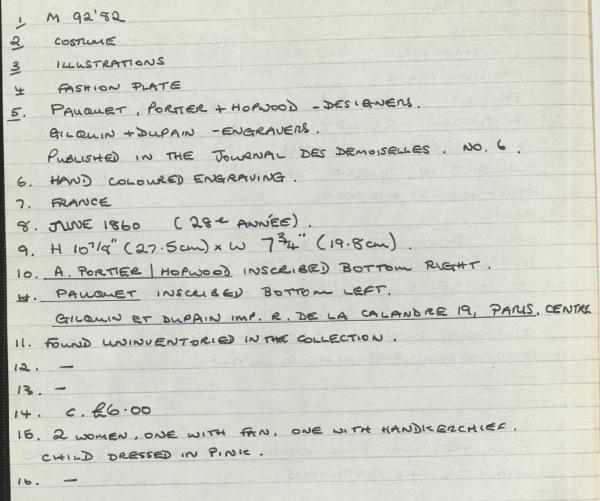 1 M 92'82
2 COSTUME
3 ILLUSTRATIONS
4 FASHION PLATE
5. PAUQUET, PORTIER + HOPWOOD - DESIGNERS.
GILQUIN + DUPAIN - ENGRAVERS.
PUBLISHED IN THE JOURNAL DES DEMOISELLES. NO. 6.
6. HAND COLOURED ENGRAVING.
7. FRANCE
8. JUNE 1860 (28e ANNÉE).
9. H 10 7/8" (27.5cm) x W 7 3/4" (19.8cm).
10. A. PORTIER / HOPWOOD INSCRIBED BOTTOM RIGHT.
PAUQUET INSCRIBED BOTTOM LEFT.
GILQUIN ET DUPAIN IMP. R. DE LA CALANDRE 19, PARIS. CENTRE
11. FOUND UNINVENTORIED IN THE COLLECTION.
12. —
13. —
14. c. £6.00
15. 2 WOMEN, ONE WITH FAN, ONE WITH HANDKERCHIEF.
CHILD DRESSED IN PINK.
16. —